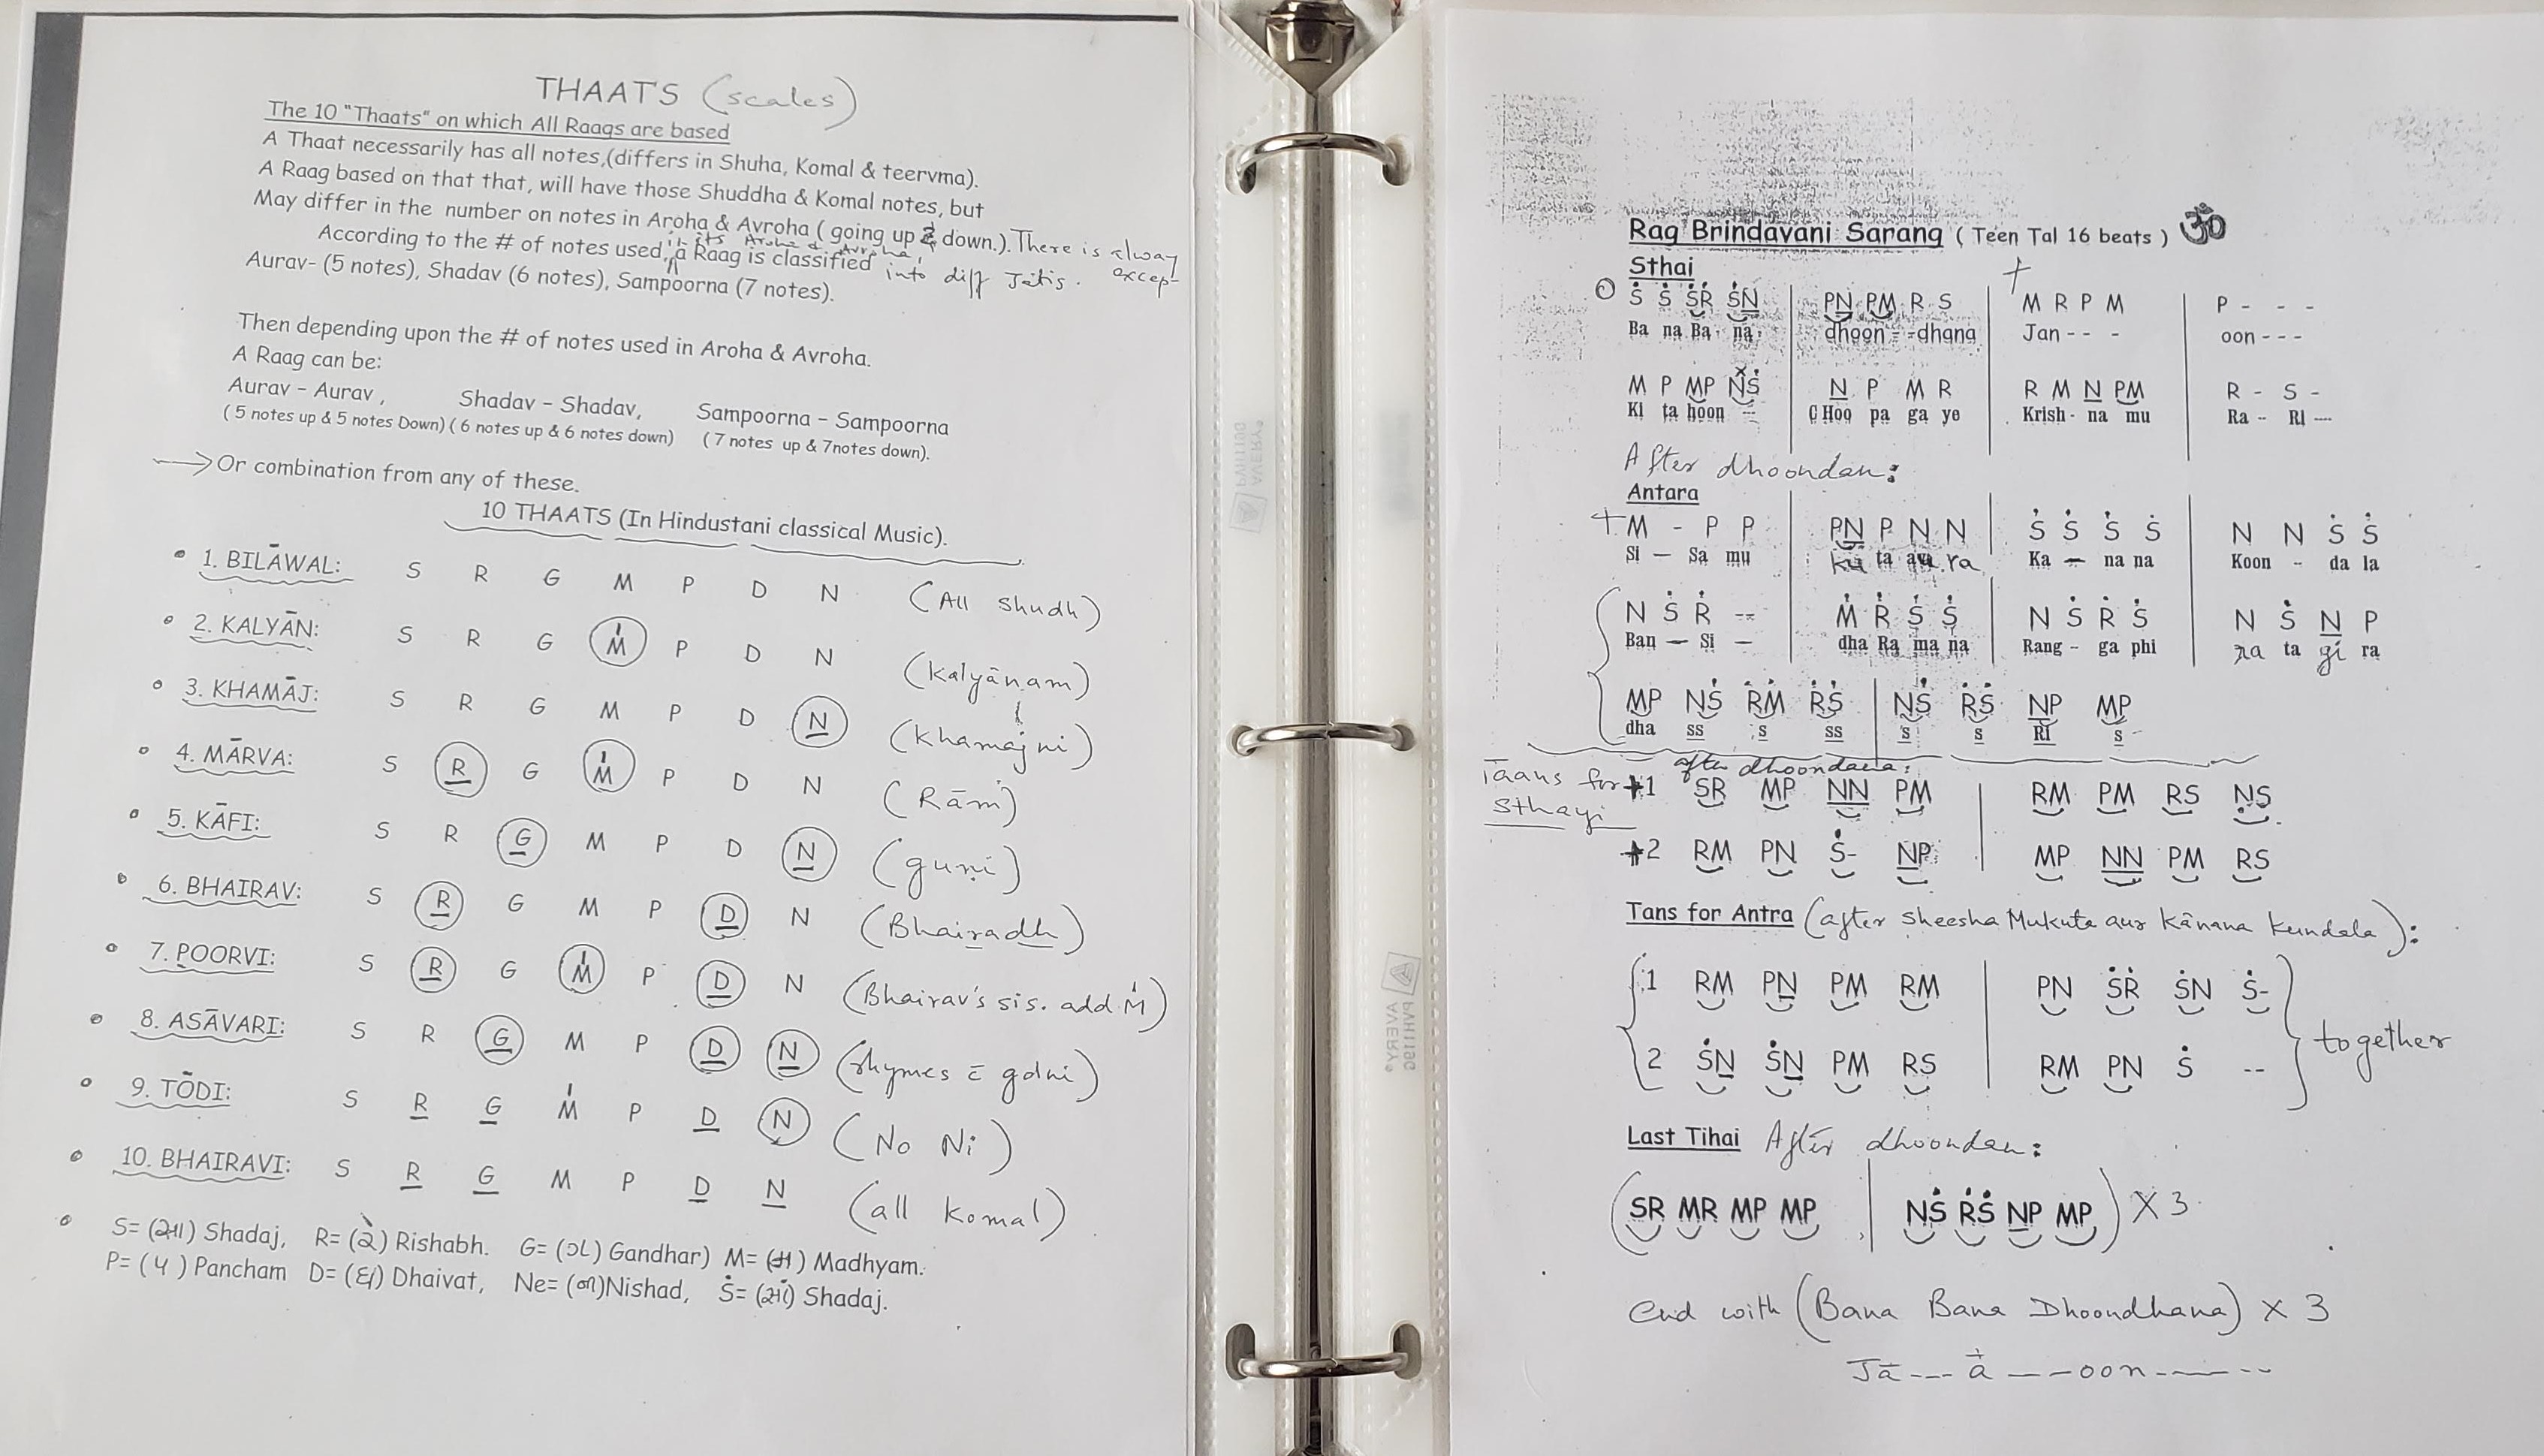 THAATS (scales)
The 10 "Thaats" on which All Raags are based
A Thaat necessarily has all notes,(differs in Shuha, Komal & teervma).
A Raag based on that that, will have those Shuddha & Komal notes, but
May differ in the number on notes in Aroha & Avroha ( going up & down.). There is alway excep-
According to the # of notes used, in its Aroha & Avroha, a Raag is classified into diff Jatis.
Aurav- (5 notes), Shadav (6 notes), Sampoorna (7 notes).
Then depending upon the # of notes used in Aroha & Avroha.
A Raag can be:
Aurav – Aurav , Shadav – Shadav, Sampoorna – Sampoorna
( 5 notes up & 5 notes Down) ( 6 notes up & 6 notes down) ( 7 notes up & 7notes down).
→ Or combination from any of these.
10 THAATS (In Hindustani classical Music).
• 1. BILĀWAL: S R G M P D N (All shudh)
• 2. KALYĀN: S R G M̍ P D N (Kalyānam̍)
• 3. KHAMĀJ: S R G M P D N̲ (Khamaj ni)
• 4. MĀRVA: S R̲ G M̍ P D N (Rām̍)
• 5. KĀFI: S R G̲ M P D N̲ (guni)
• 6. BHAIRAV: S R̲ G M P D̲ N (Bhairadh)
• 7. POORVI: S R̲ G M̍ P D̲ N (Bhairav's sis. add M̍)
• 8. ASĀVARI: S R G̲ M P D̲ N̲ (rhymes c̄ gdni)
• 9. TŌDI: S R̲ G̲ M̍ P D̲ N (No Ni)
• 10. BHAIRAVI: S R̲ G̲ M P D̲ N̲ (all komal)
• S= (સા) Shadaj, R= (રે) Rishabh. G= (ગ) Gandhar) M= (મ) Madhyam.
P= (પ) Pancham D= (ધ) Dhaivat, Ne= (ની)Nishad, Ṡ= (સાં) Shadaj.
Rag Brindavani Sarang ( Teen Tal 16 beats ) ॐ
Sthai +
O Ṡ Ṡ ṠṘ ṠN̲ | PN̲ PM R S | M R P M | P - - -
Ba na Ba - na - dhoon - -dhana Jan - - - oon - - -
M P MP NṠ | N̲ P M R | R M N̲ PM | R - S -
Ki ta hoon -- C Hoo pa ga ye Krish - na mu Ra -- Ri ---
After dhoondan:
Antara
+ M - P P | PN̲ P N N | Ṡ Ṡ Ṡ Ṡ | N N Ṡ Ṡ
Si – Sa mu ku ta au ra Ka – na na Koon - da la
N Ṡ Ṙ -- | Ṁ Ṙ Ṡ Ṡ | N Ṡ Ṙ Ṡ | N Ṡ N̲ P
Ban – Si – dha Ra ma na Rang - ga phi ra ta gi ra
MP NṠ ṘṀ ṘṠ | NṠ ṘṠ N̲P MP
dha ss s ss s s Ri s
Taans for Sthayi after dhoondana:
+1 SR MP N̲N̲ PM | RM PM RS ṆS
+2 RM PN Ṡ- N̲P | MP N̲N̲ PM RS
Tans for Antra (after sheesha Mukuta aur Kānana kundala):
1 RM PN̲ PM RM | PN ṠṘ ṠN Ṡ- together
2 ṠN̲ ṠN̲ PM RS | RM PN Ṡ --
Last Tihai After dhoondan:
(SR MR MP MP | NṠ ṘṠ N̲P MP) X 3
end with (Bana Bana Dhoondhana) x 3
Jā --- ā – – – oon - — — --